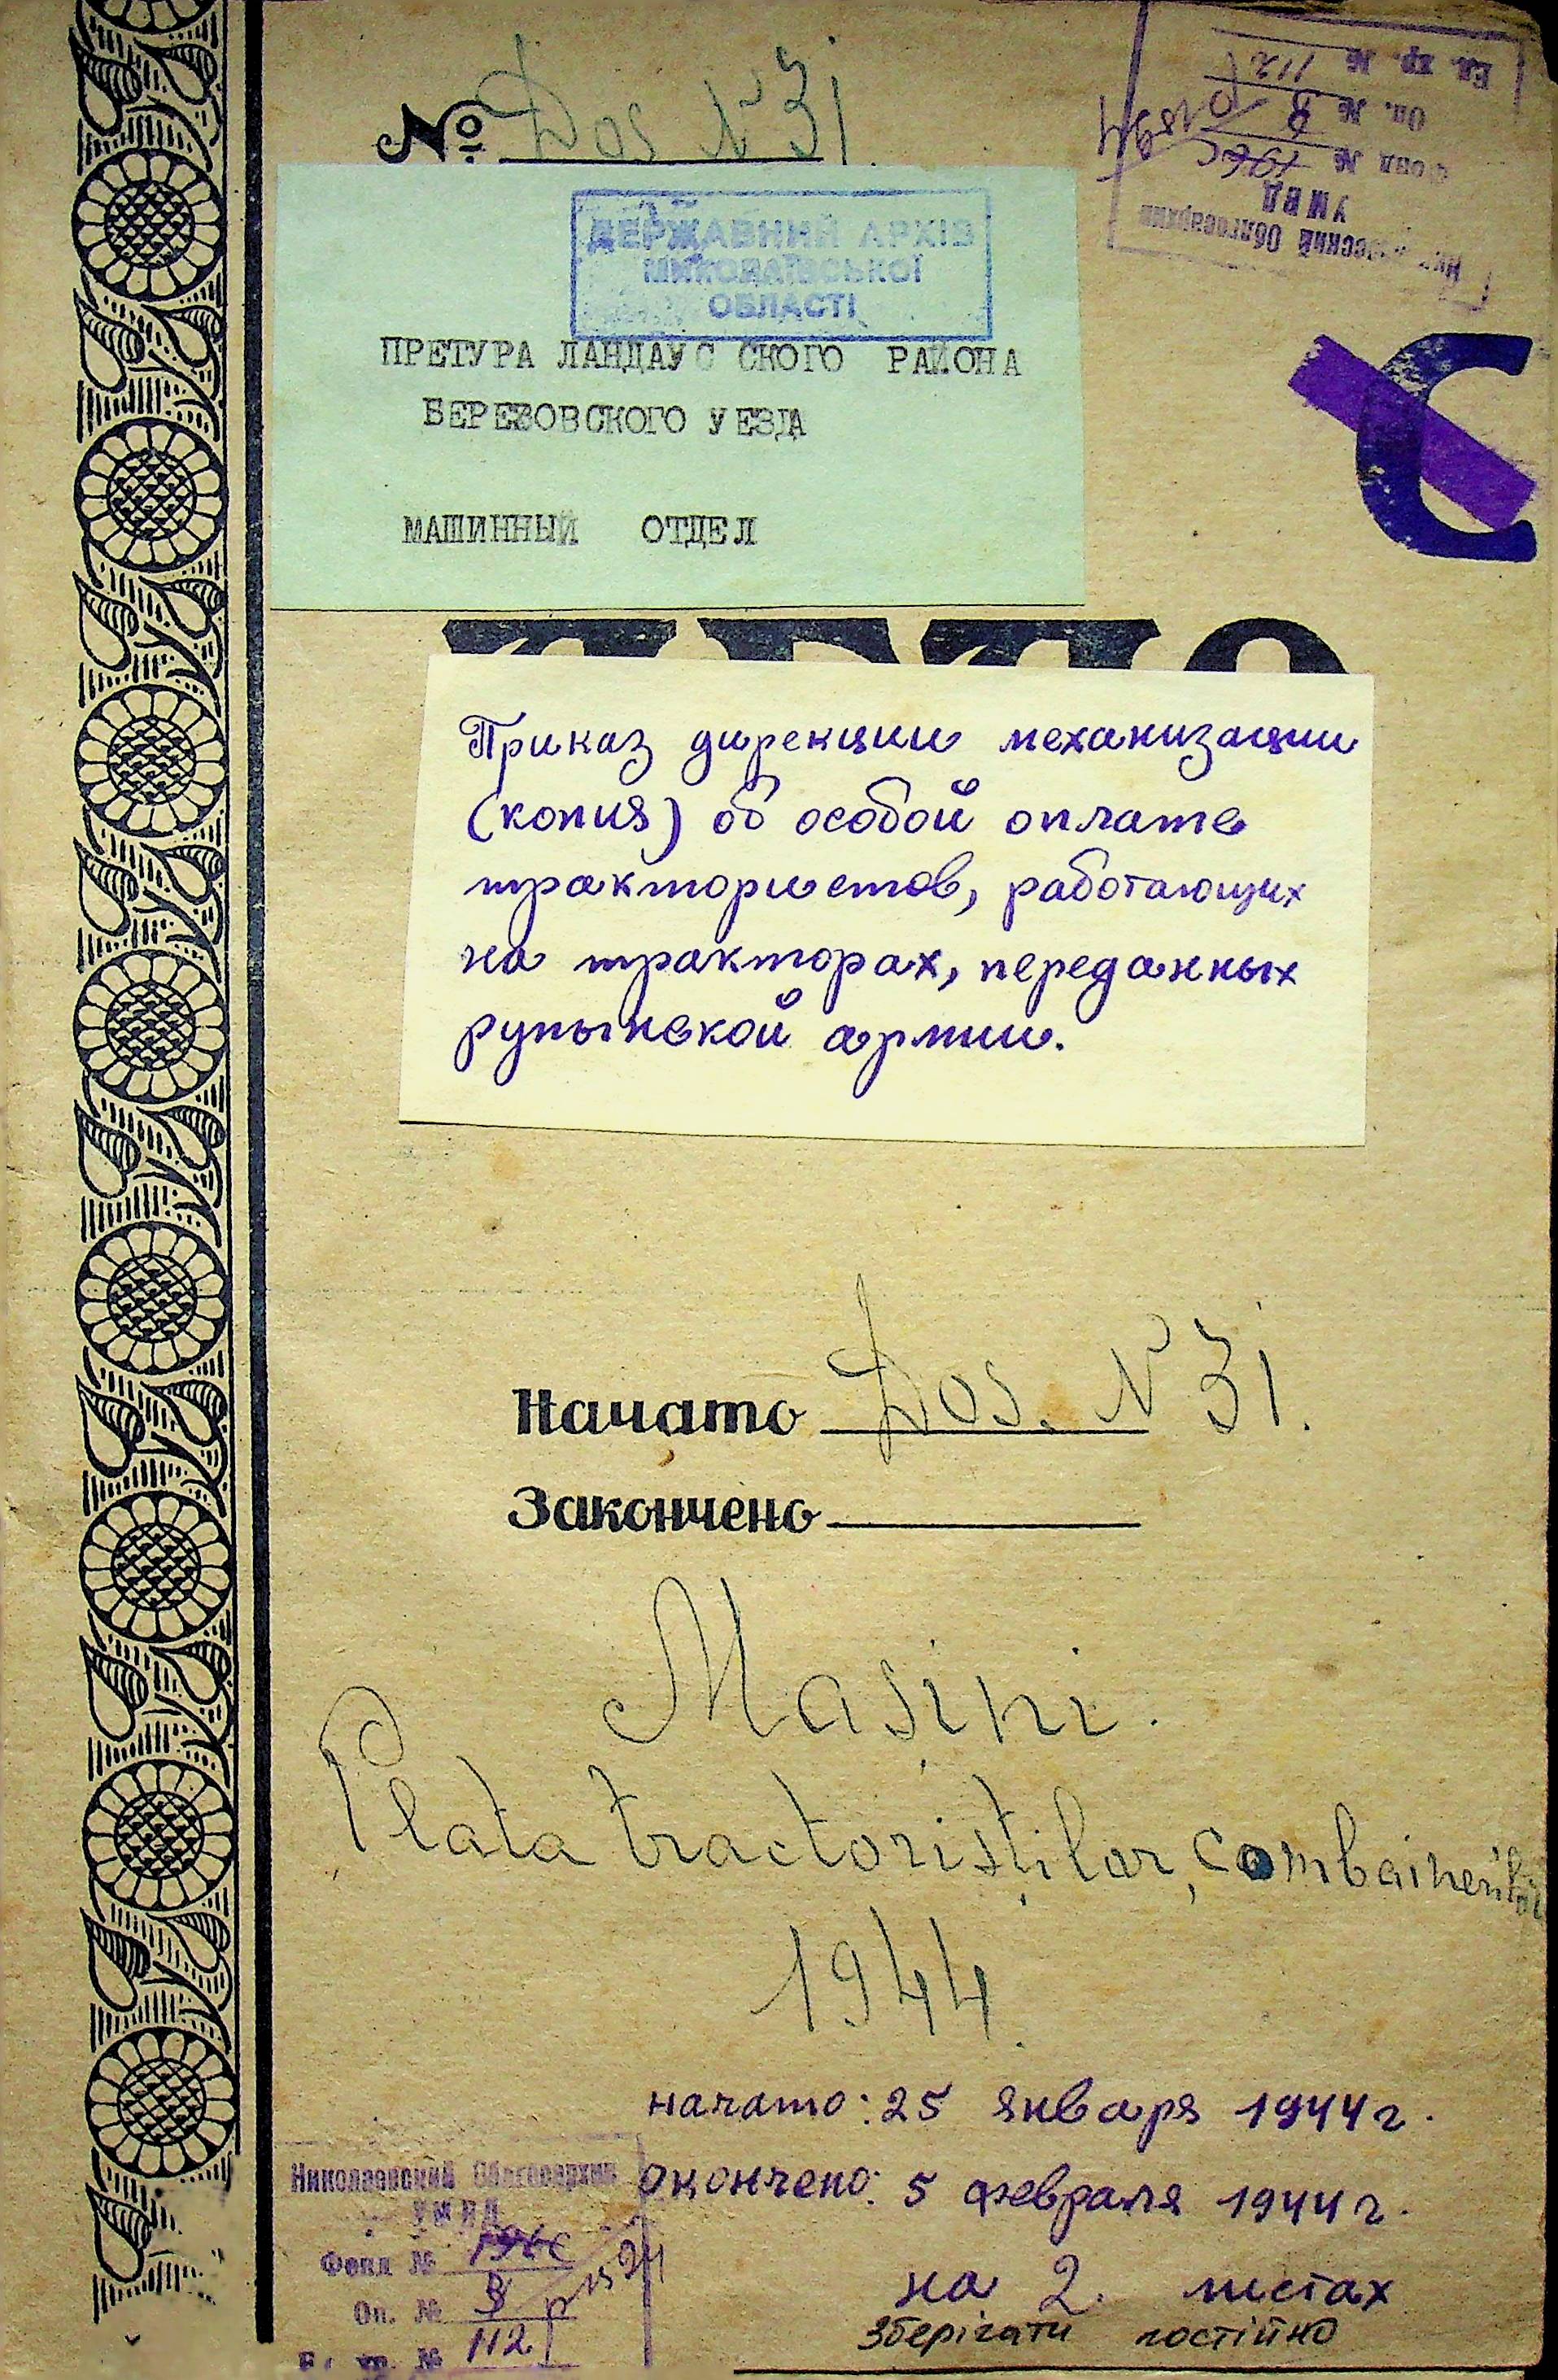 № Dos N 31.
ДЕРЖАВНИЙ АРХІВ
МИКОЛАЇВСЬКОЇ
ОБЛАСТІ
Ед. хр. № 112
Оп. № 8
Фонд № 196с
УМВД
Николаевский Облгосархив
С
ПРЕТУРА ЛАНДАУС СКОГО РАЙОНА
БЕРЕЗОВСКОГО УЕЗДА
МАШИННЫЙ ОТДЕЛ
Приказ дирекции механизации
(копия) об особой оплате
трактористов, работающих
на тракторах, переданных
румынской армии.
Начато Dos. N 31.
Закончено
Masini.
Plata tractoriștilor, combainerilor
1944
начато: 25 января 1944 г.
окончено: 5 февраля 1944 г.
на 2. листах
Зберігати постійно
Николаевский Облгосархив
УМВД
Фонд № 196с
Оп. № 8
Ед. хр. № 112